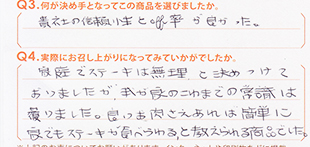 Q3.何が決め手となってこの商品を選びましたか。
貴社の信頼性とoff率が良かった。
Q4.実際にお召し上がりになってみていかがでしたか。
家庭でステーキは無理と決めつけて
おりましたが、我が家のこれまでの常識は
覆りました。良いお肉さえあれば簡単に
家でもステーキが食べられると教えられる商品でした。